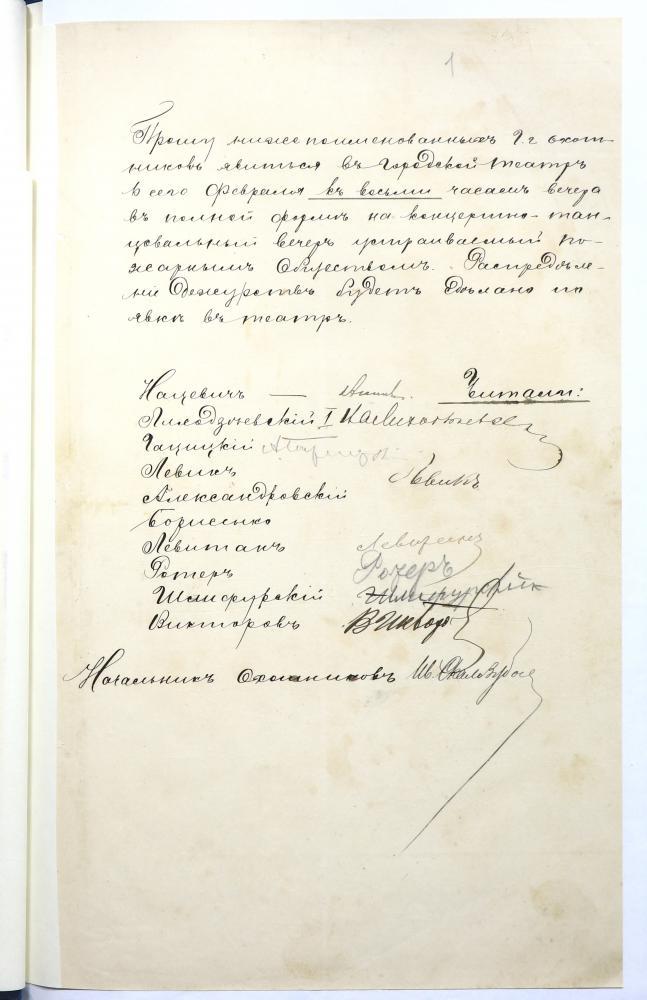 1
Прошу нижепоименованныхъ г.г охот-
никовъ явиться въ Городской театръ
сего Февраля къ восьми часамъ вечера
въ полной формѣ на концертно-тан-
цовальный вечеръ устраиваемый по-
жарнымъ Обществомъ. Распредѣле-
ніе Дежурствъ будетъ Сдѣлано по
явкѣ въ театръ.
Нацевичъ — Читали:
I
Гацицкій
Левикъ Левикъ
Александровскій
Борисенко
Левитанъ
Ротеръ Ротеръ
Шлифурскій Шлифурскій
Викторовъ
Начальникъ Охотниковъ